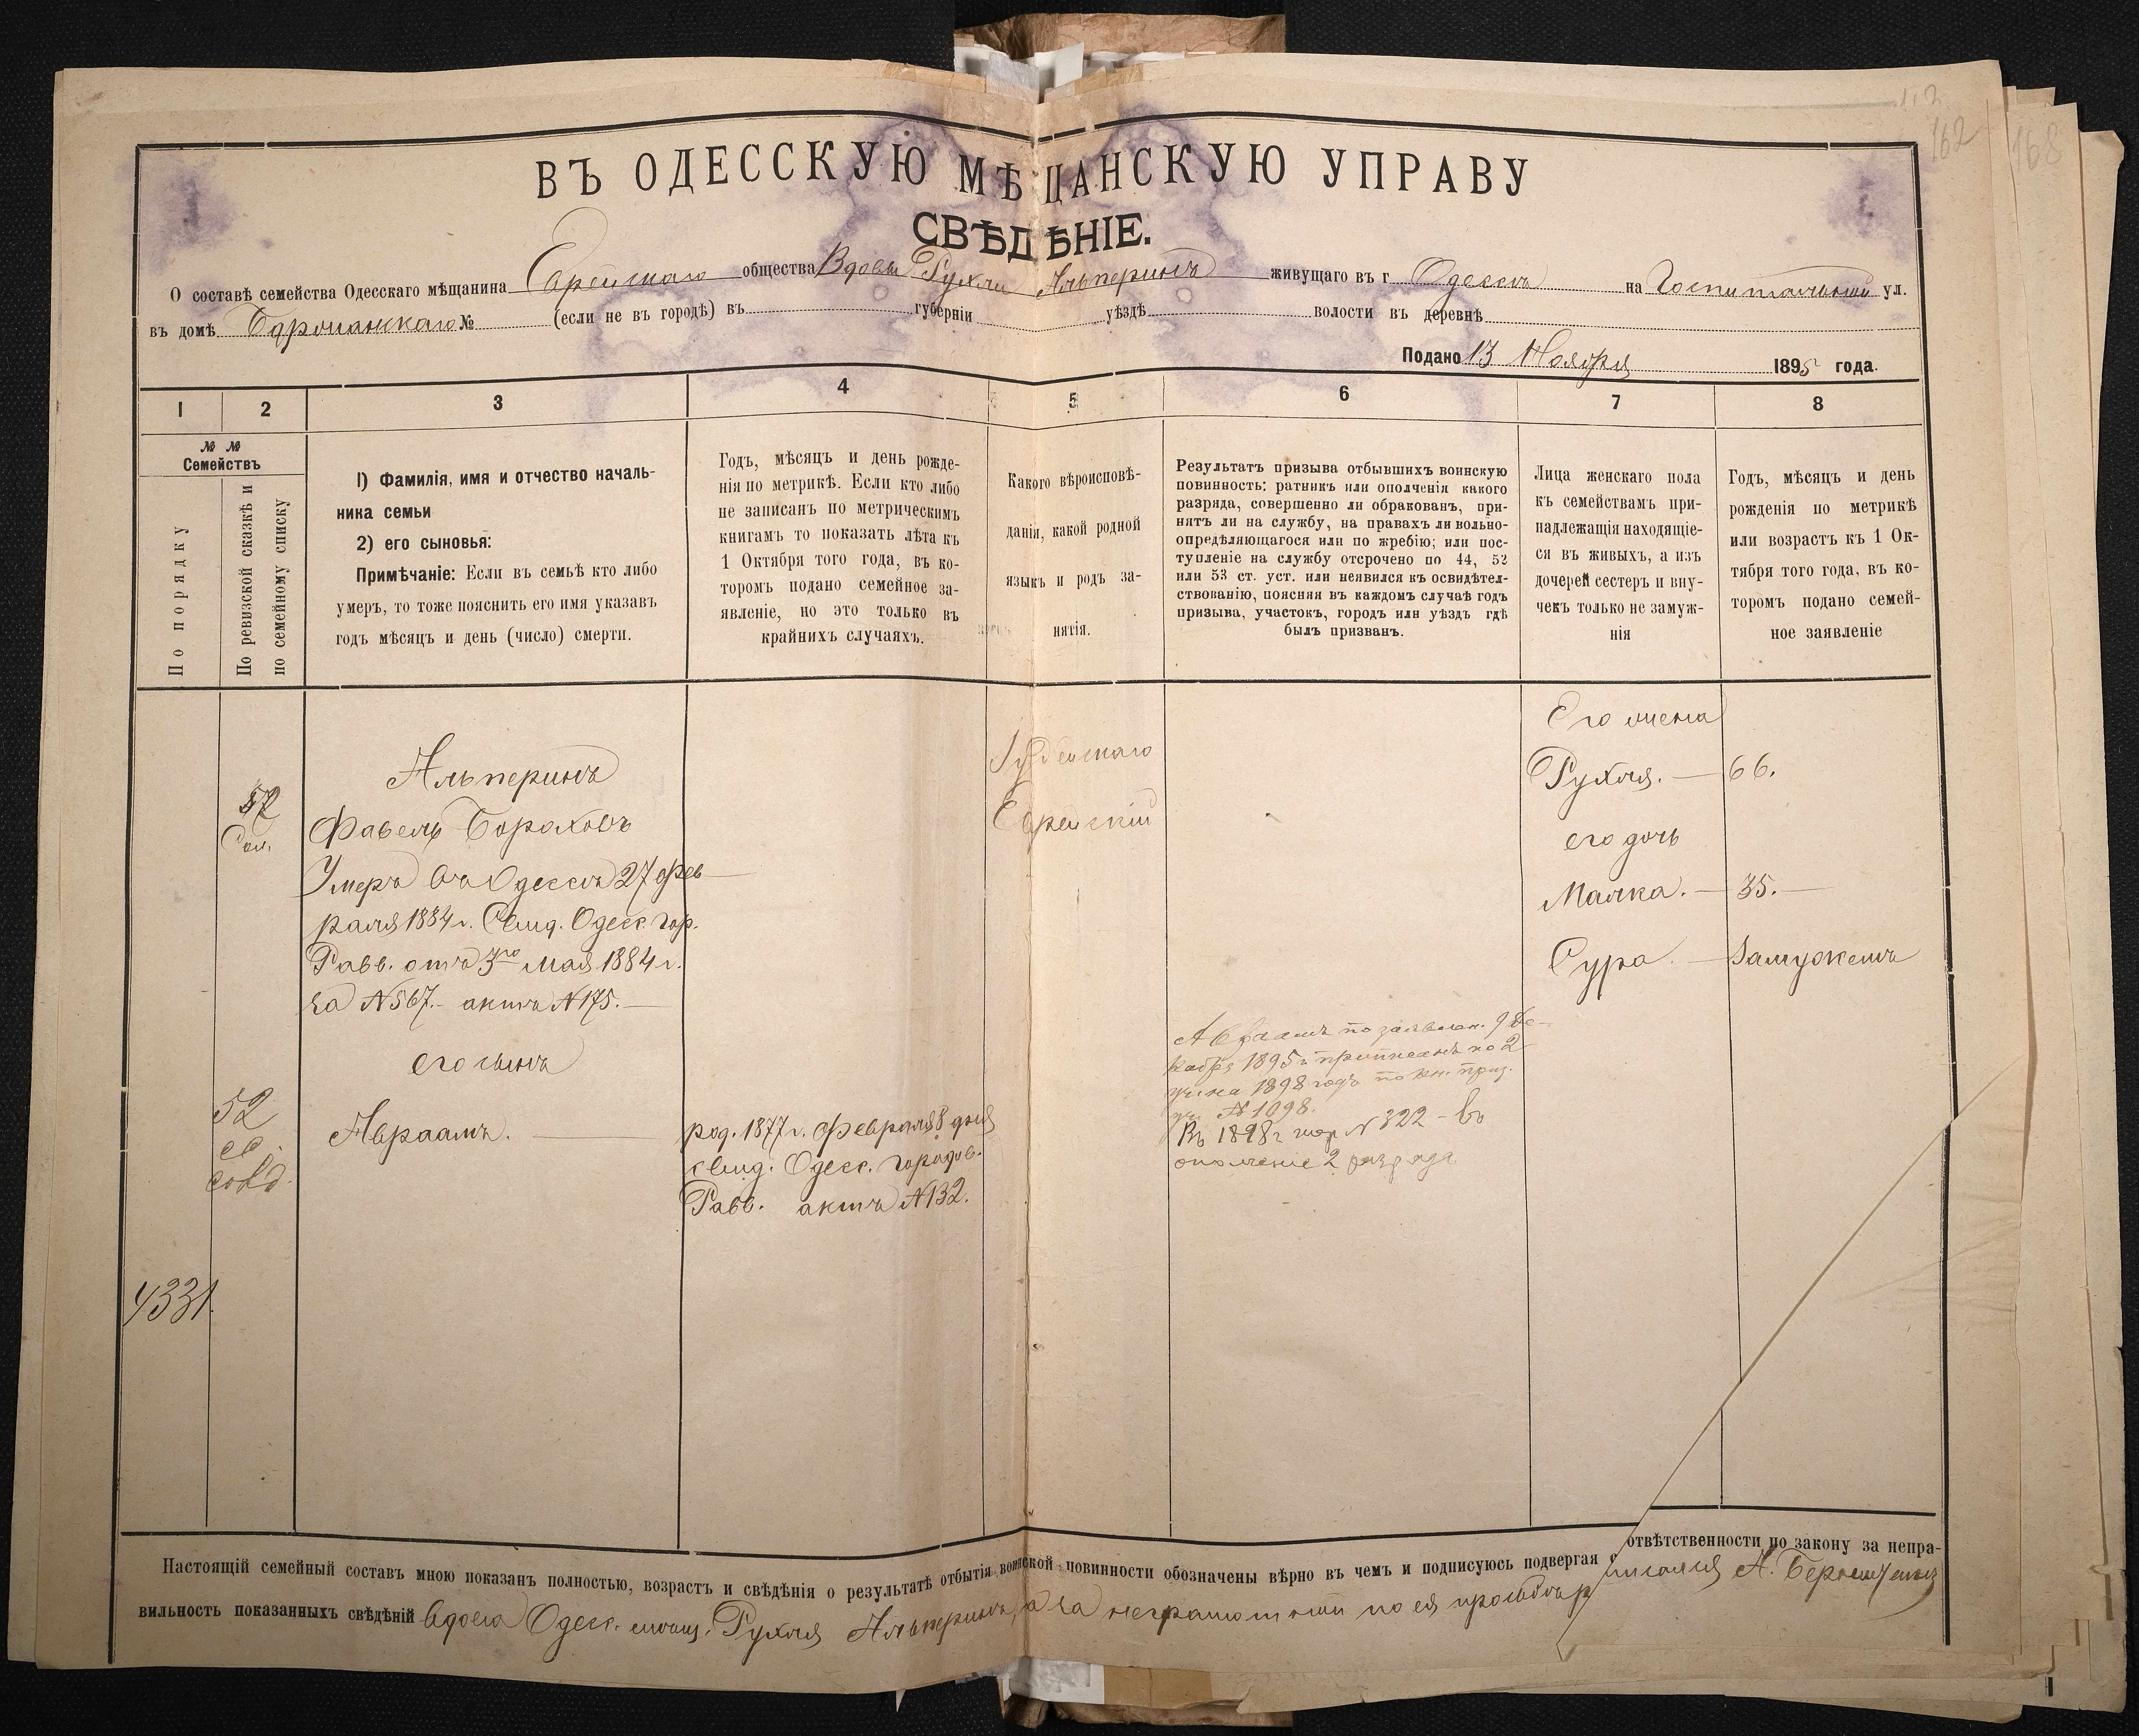 162
168
ВЪ ОДЕССКУЮ МѢЩАНСКУЮ УПРАВУ
СВѢДѢНІЕ.
О составѣ семейства Одесскаго мѣщанина Еврейскаго общества Вдовы Рухли Альперинъ живущаго въ г. Одессѣ на Госпитальной ул.
въ домѣ № (если не въ городѣ) въ губерніи уѣздѣ волости въ деревнѣ
Подано 13 Ноября 1895 года.
1 2 3 4 5 6 7 8
№ № Семействъ
По порядку
По ревизской сказкѣ и
по семейному списку
1) Фамилія, имя и отчество началь-
ника семьи
2) его сыновья:
Примѣчаніе: Если въ семьѣ кто либо
умеръ, то тоже пояснить его имя указавъ
годъ мѣсяцъ и день (число) смерти.
Годъ, мѣсяцъ и день рожде-
нія по метрикѣ. Если кто либо
не записанъ по метрическимъ
книгамъ то показать лѣта къ
1 Октября того года, въ ко-
торомъ подано семейное за-
явленіе, но это только въ
крайнихъ случаяхъ.
Какого вѣроисповѣ-
данія, какой родной
языкъ и родъ за-
нятія.
Результатъ призыва отбывшихъ воинскую
повинность: ратникъ или ополченія какого
разряда, совершенно ли обракованъ, при-
нятъ ли на службу, на правахъ ли вольно-
опредѣляющагося или по жребію; или пос-
тупленіе на службу отсрочено по 44, 52
или 53 ст. уст. или неявился къ освидѣтел-
ствованію, поясняя въ каждомъ случаѣ годъ
призыва, участокъ, городъ или уѣздъ гдѣ
былъ призванъ.
Лица женскаго пола
къ семействамъ при-
надлежащія находящіе-
ся въ живыхъ, а изъ
дочерей сестеръ и вну-
чекъ только не замуж-
нія
Годъ, мѣсяцъ и день
рожденія по метрикѣ
или возрастъ къ 1 Ок-
тября того года, въ ко-
торомъ подано семей-
ное заявленіе
Альперинъ
Фавель Бороховъ
Умеръ въ Одессѣ 27 фев
раля 1884 г. Свид. Одесс. гор.
Равв. отъ 3го Мая 1884 г.
за № 567. актъ № 175.
его сынъ
52
Авраамъ.
род. 1877 г. Февраля 8 дня
свид. Одесс. городов.
Равв. актъ № 132.
Іудейскаго
Еврейскій
Авраамъ по заявлен. 9 Де-
кабря 1895 г. приписанъ ко 2
уч. на 1898 годъ по кн. приз.
уч. № 1098.
Въ 1898 г. № 322 - въ
ополченіе 2 разряда
Его жена
Рухля. — 66.
его дочь
Малка. — 35. —
Сура. — Замужемъ
4331
Настоящій семейный составъ мною показанъ полностью, возрастъ и свѣдѣнія о результатѣ отбытія воинской повинности обозначены вѣрно въ чемъ и подписуюсь подвергая отвѣтственности по закону за непра-
вильность показанныхъ свѣдѣній вдова Одесс. мѣщ. Рухля Альперинъ, а за неграмотной по ея просьбѣ А.